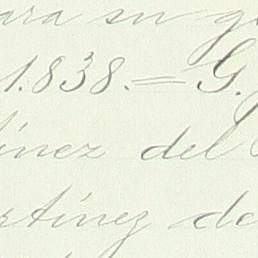 ara su g
1.838.= G.
ínez del
rtínez de